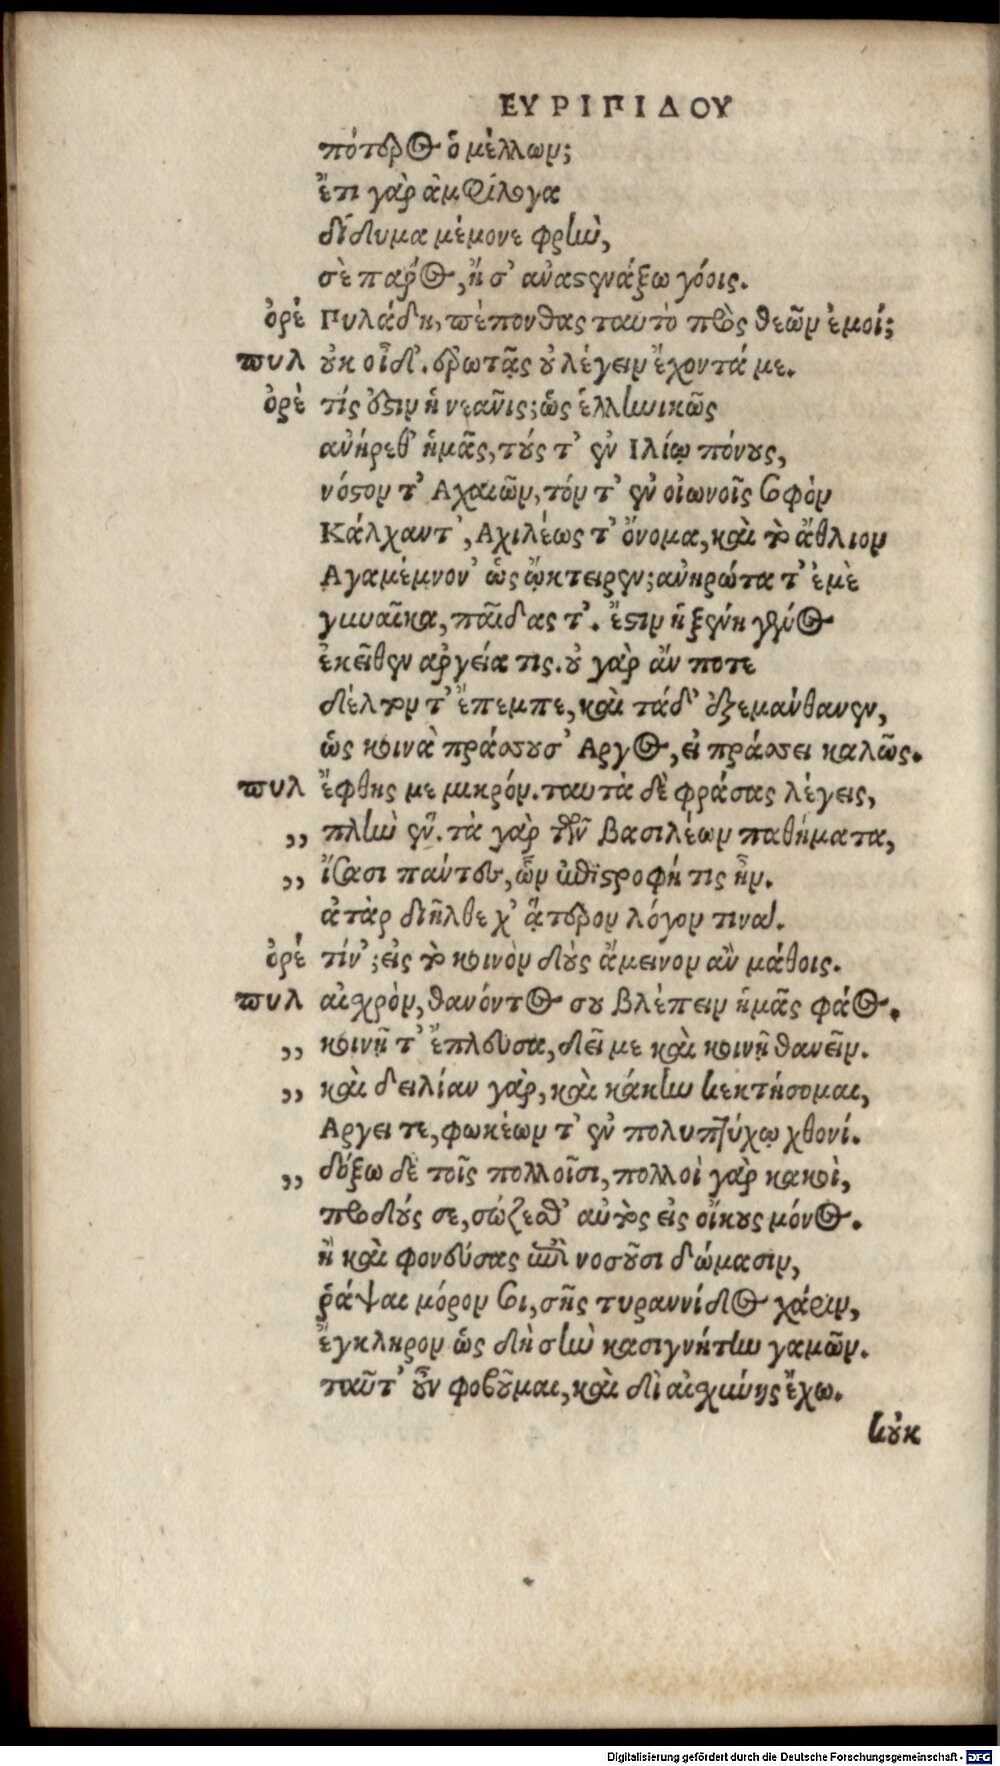 ΕΥΡΙΠΙΔΟΥ
πότερος ὁ μέλλων;
ἔτι γὰρ ἀμφίλογα
δίδυμα μέμονε φρὴν,
σὲ πάρος, ἤ σ' ἀναστενάξω γόοις.
ὀρέ Πυλάδη, πέπονθας ταυτὸ πρὸς θεῶν ἐμοί;
πυλ οὐκ οἶδ'. ἐρωτᾷς οὐ λέγειν ἔχοντά με.
ὀρὲ τίς ἐστιν ἡ νεᾶνις; ὡς ἑλληνικῶς
ἀνήρεθ' ἡμᾶς, τούς τ' ἐν Ιλίῳ πόνους,
νόστον τ' Αχαιῶν, τόν τ' ἐν οἰωνοῖς σοφὸν
Κάλχαντ', Αχιλέως τ' ὄνομα, καὶ τὸν ἄθλιον
Αγαμέμνον' ὡς ᾤκτειρεν; ἀνηρώτα τ' ἐμὲ
γυναῖκα, παῖδας τ'. ἔστιν ἡ ξένη γένος
ἐκεῖθεν ἀργεία τις. οὐ γὰρ ἄν ποτε
δέλτον τ' ἔπεμπε, καὶ τάδ' ἐξεμάνθανεν,
ὡς κοινὰ πράσσουσ' Αργος, εἰ πράσσει καλῶς.
πυλ ἔφθης με μικρόν. ταυτὰ δὲ φράσας λέγεις,
„ πλὴν ἕν. τὰ γὰρ τῶν βασιλέων παθήματα,
„ ἴσασι πάντες, ὧν ἐπιστροφή τις ἦν.
ἀτὰρ διῆλθε χ' ἅτερον λόγον τινα.
ὀρέ τίν'; εἰς τὸ κοινὸν δοὺς ἄμεινον ἂν μάθοις.
πυλ αἰσχρὸν, θανόντος σου βλέπειν ἡμᾶς φάος.
„ κοινῇ τ' ἔπλευσα, δεῖ με καὶ κοινῇ θανεῖν.
„ καὶ δειλίαν γὰρ, καὶ κάκην κεκτήσομαι,
Αργει τε, φωκέων τ' ἐν πολυπτύχῳ χθονί.
„ δόξω δὲ τοῖς πολλοῖσι, πολλοὶ γὰρ κακοὶ,
προδούς σε, σώζεσθ' αὐτὸς εἰς οἴκους μόνος.
ἢ καὶ φονεύσας ἐπὶ νοσοῦσι δώμασιν,
ῥάψαι μόρον σοι, σῆς τυραννίδος χάριν,
ἔγκληρον ὡς δὴ σὴν κασιγνήτην γαμῶν.
ταῦτ' οὖν φοβοῦμαι, καὶ δι αἰσχύνης ἔχω.
κοὐκ
Digitalisierung gefördert durch die Deutsche Forschungsgemeinschaft - DFG